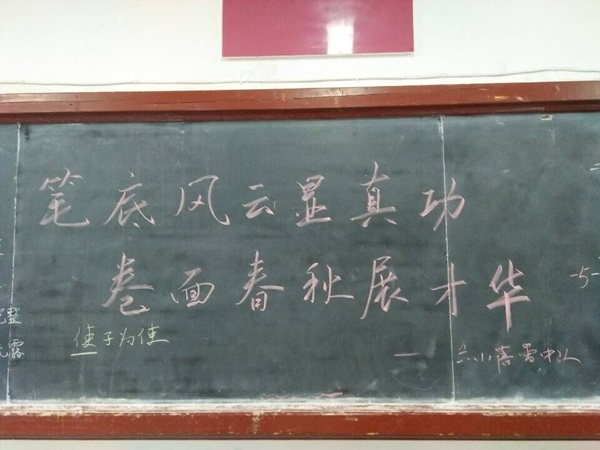 笔底风云显真功
卷面春秋展才华
使子为使
露